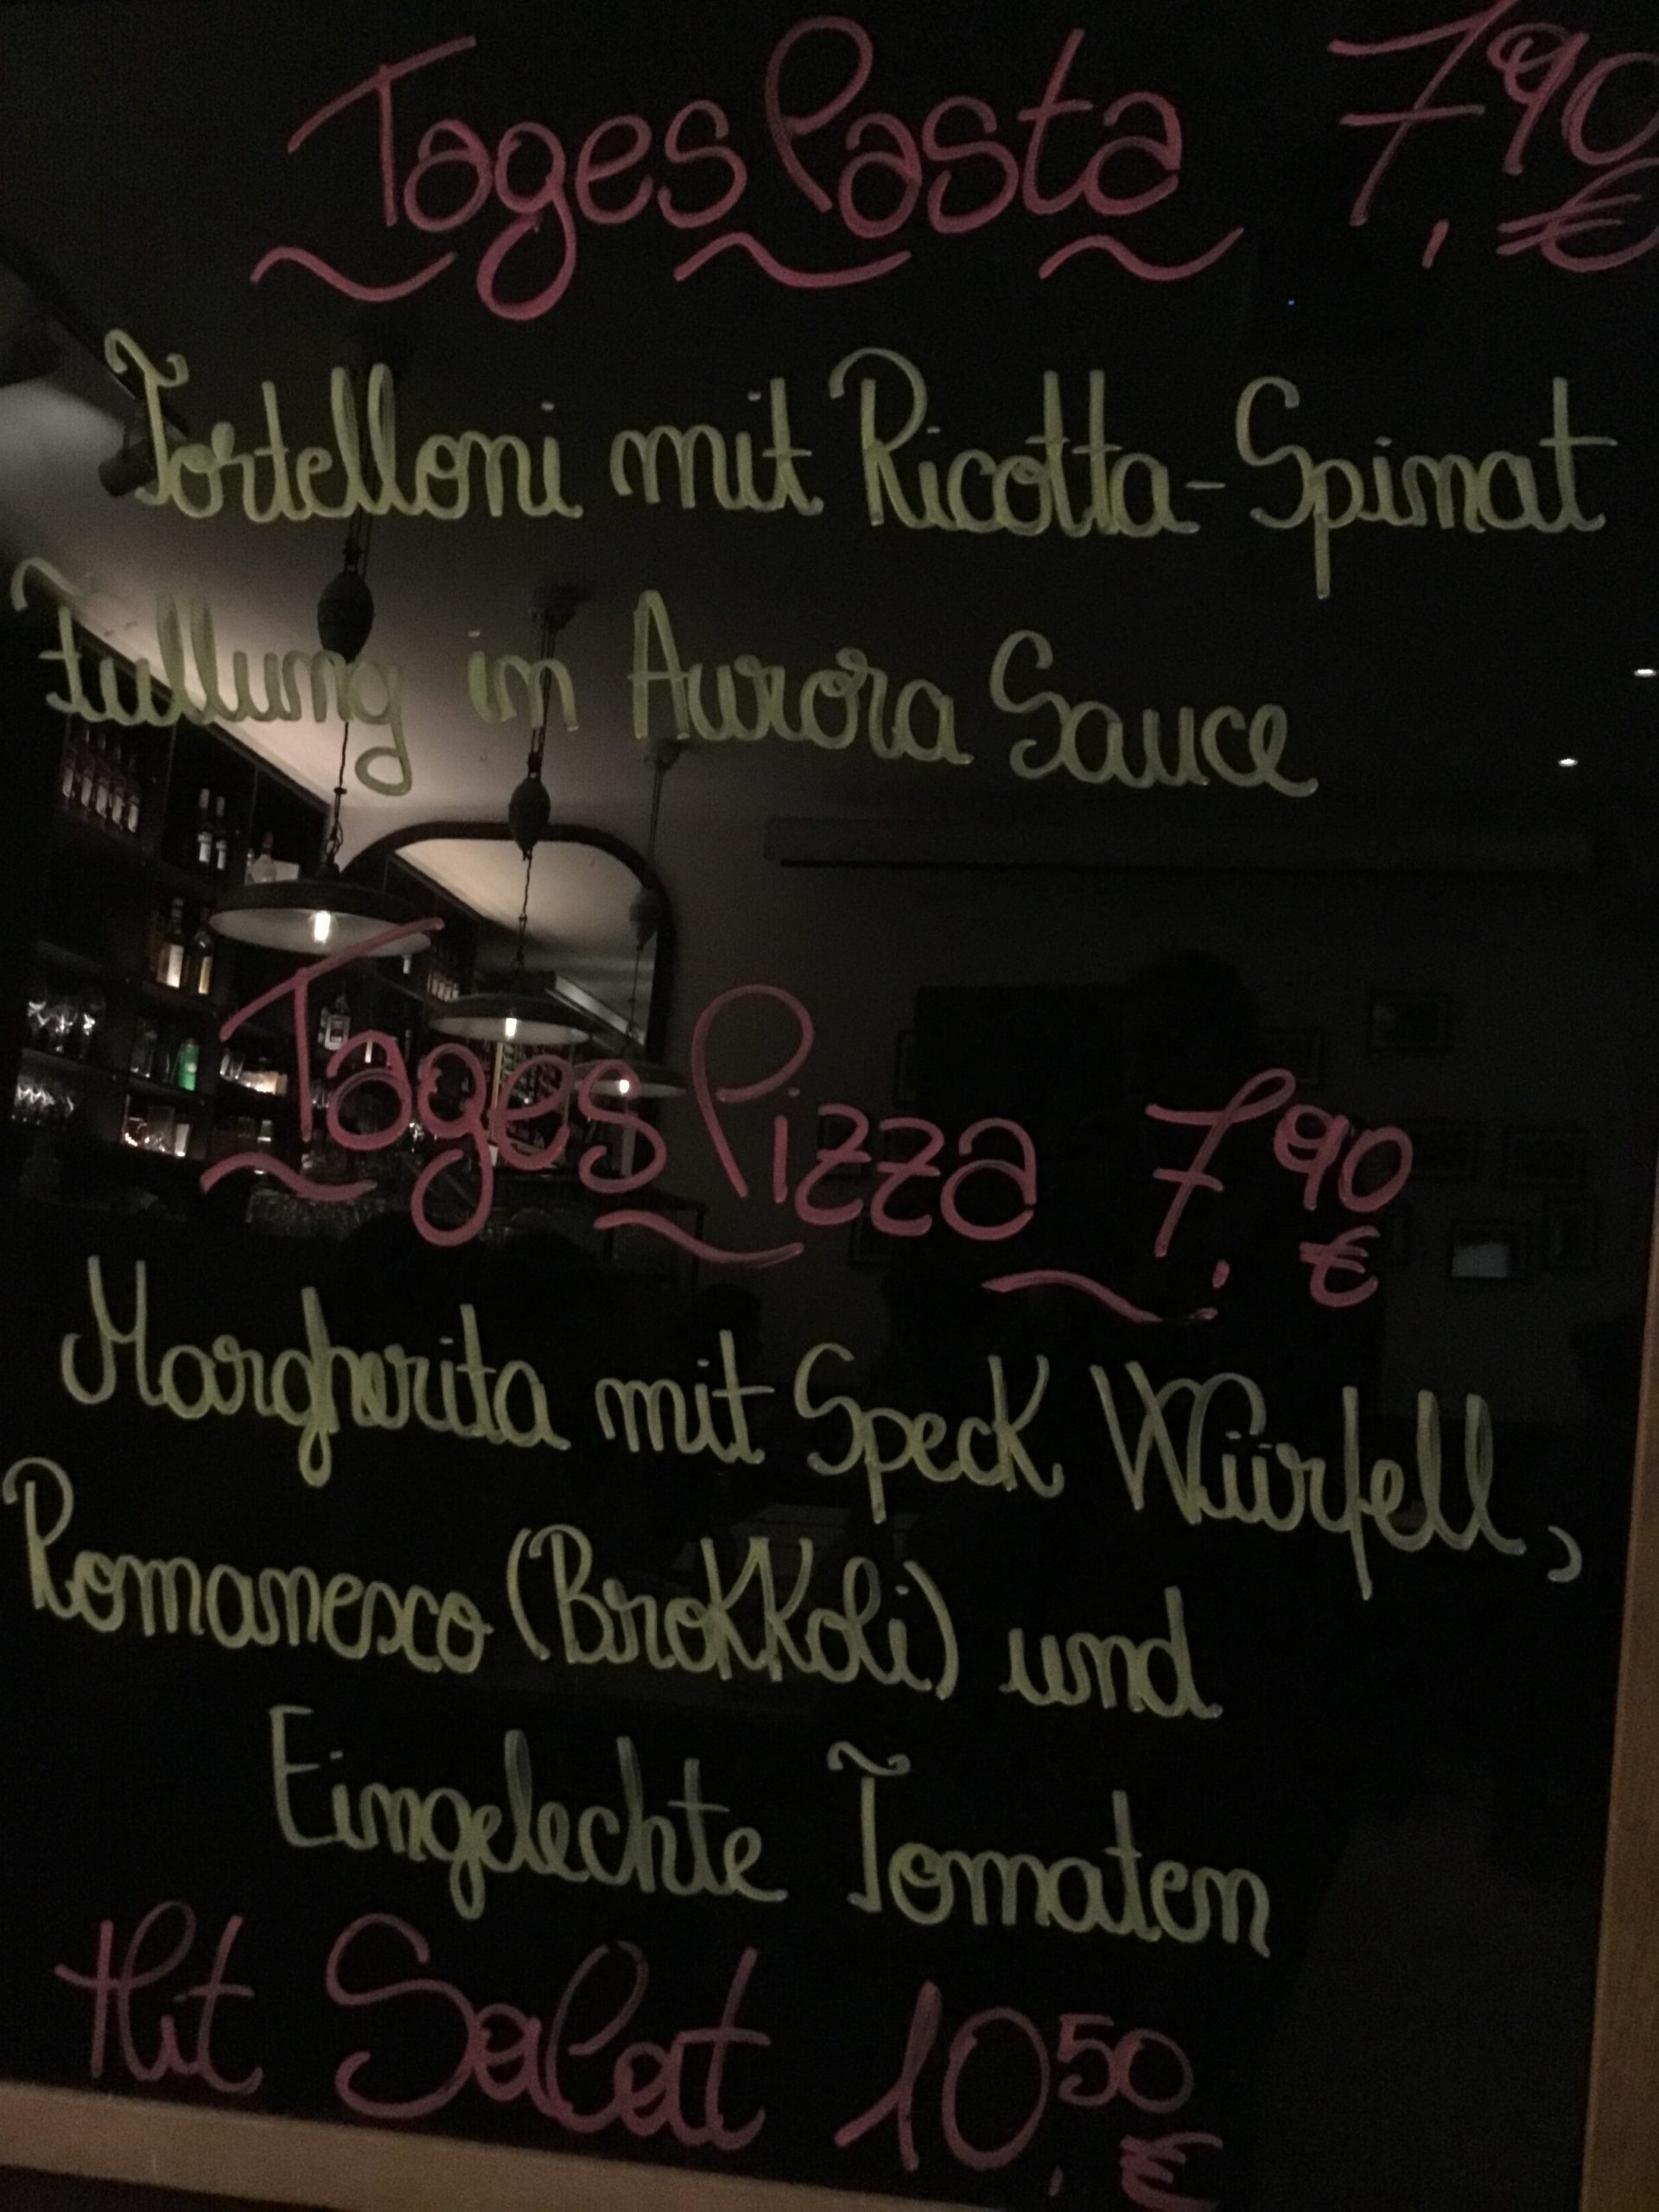 Tages Pasta 7,90 €
Tortelloni mit Ricotta-Spinat
Fullung in Aurora Sauce
Tages Pizza 7,90 €
Margherita mit Speck Würfell,
Romanesco (Brokkoli) und
Eingelechte Tomaten
Hit Salat 10,50 €